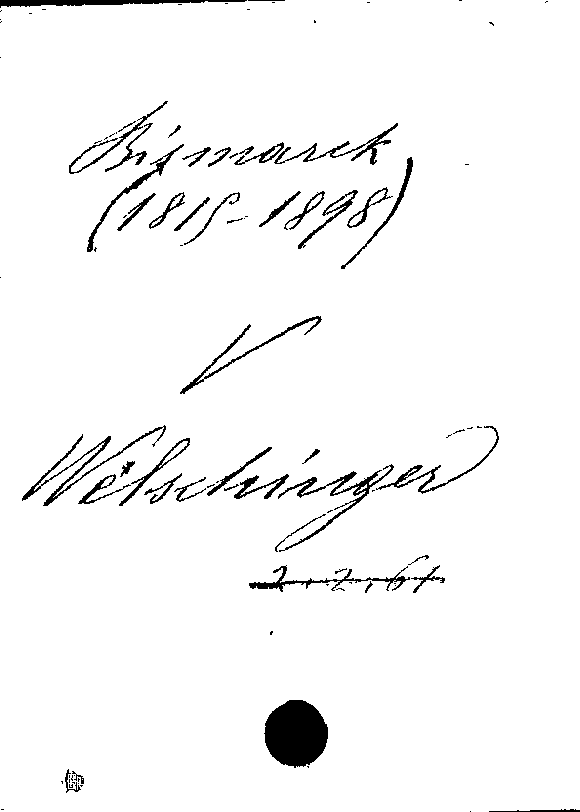 Bismarck
(1815-1898)
V
Welschinger
2.2.61